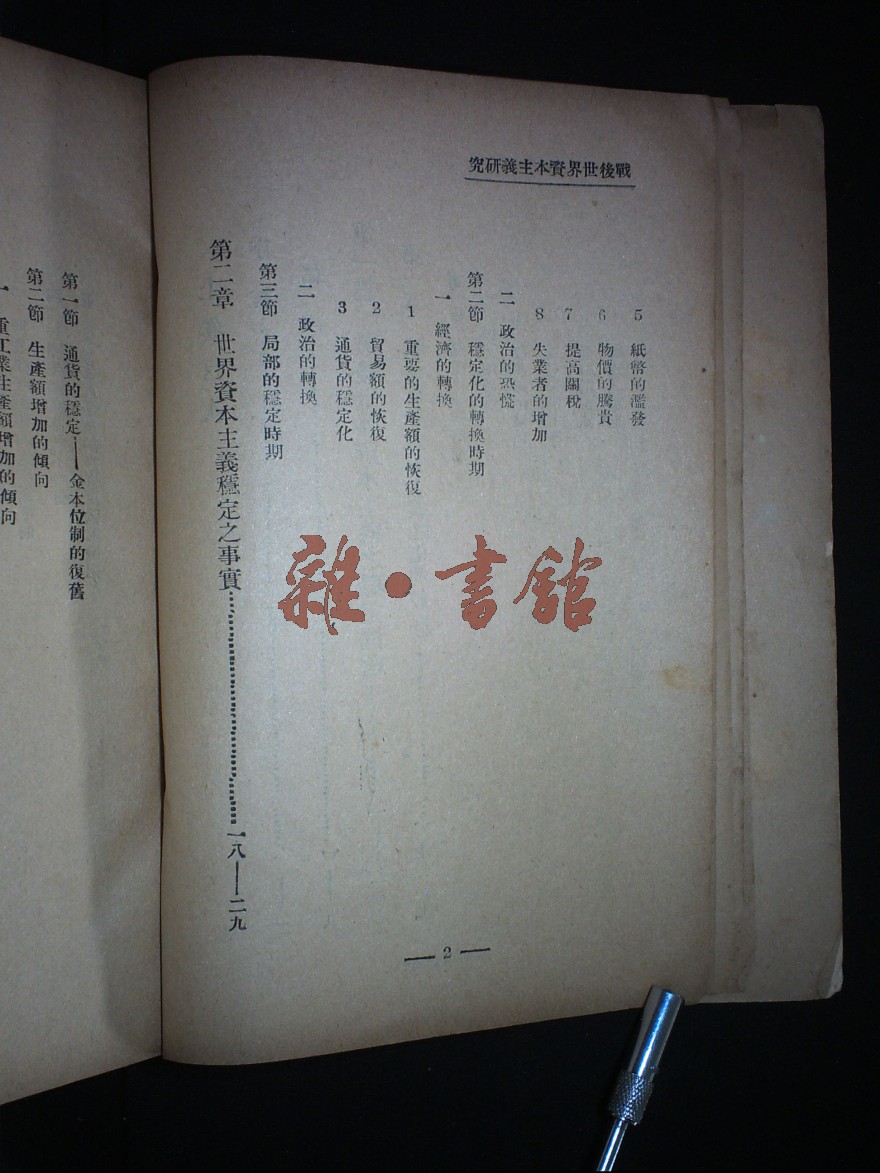 戰後世界資本主義研究
5 紙幣的濫發
6 物價的騰貴
7 提高關稅
8 失業者的增加
二 政治的恐慌
第二節 穩定化的轉換時期
一 經濟的轉換
1 重要的生產額的恢復
2 貿易額的恢復
3 通貨的穩定化
二 政治的轉換
第三節 局部的穩定時期
第二章 世界資本主義穩定之事實……………………一八——二九
— 2 —
第一節 通貨的穩定——金本位制的復舊
第二節 生產額增加的傾向
一 重工業生產額增加的傾向
雜·書館